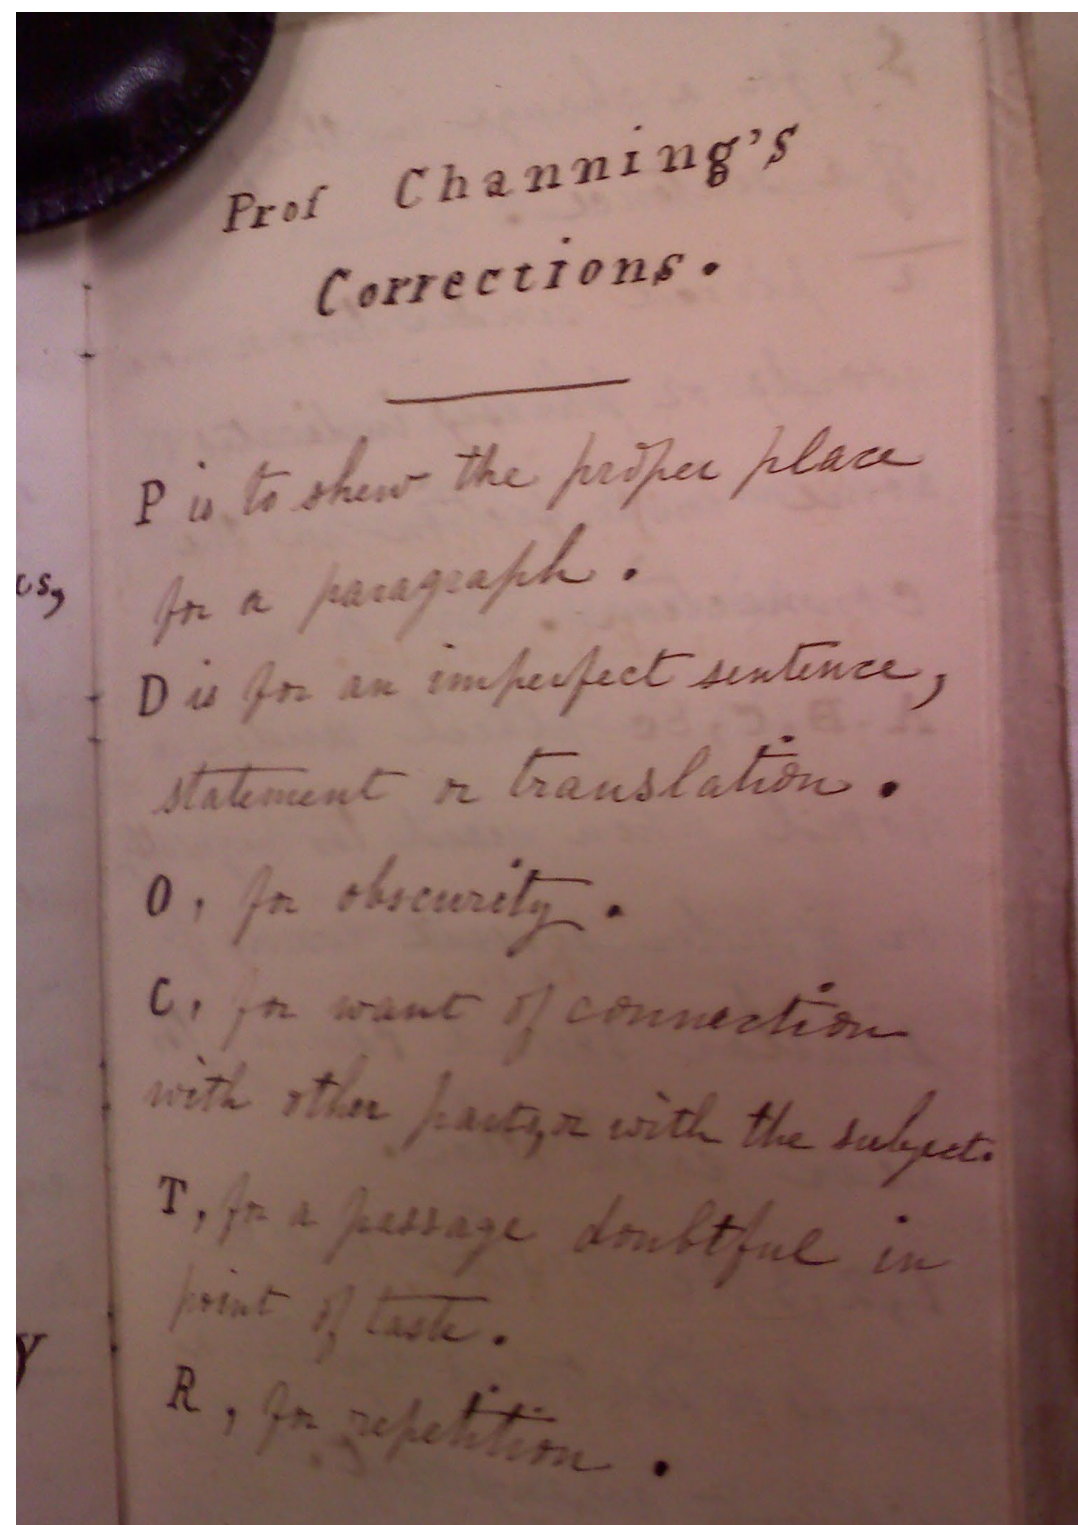 Prof Channing's
Corrections.
P is to shew the proper place
for a paragraph.
D is for an imperfect sentence,
statement or translation.
O, for obscurity.
C, for want of connection
with other parts, or with the subject.
T, for a passage doubtful in
point of taste.
R, for repetition.